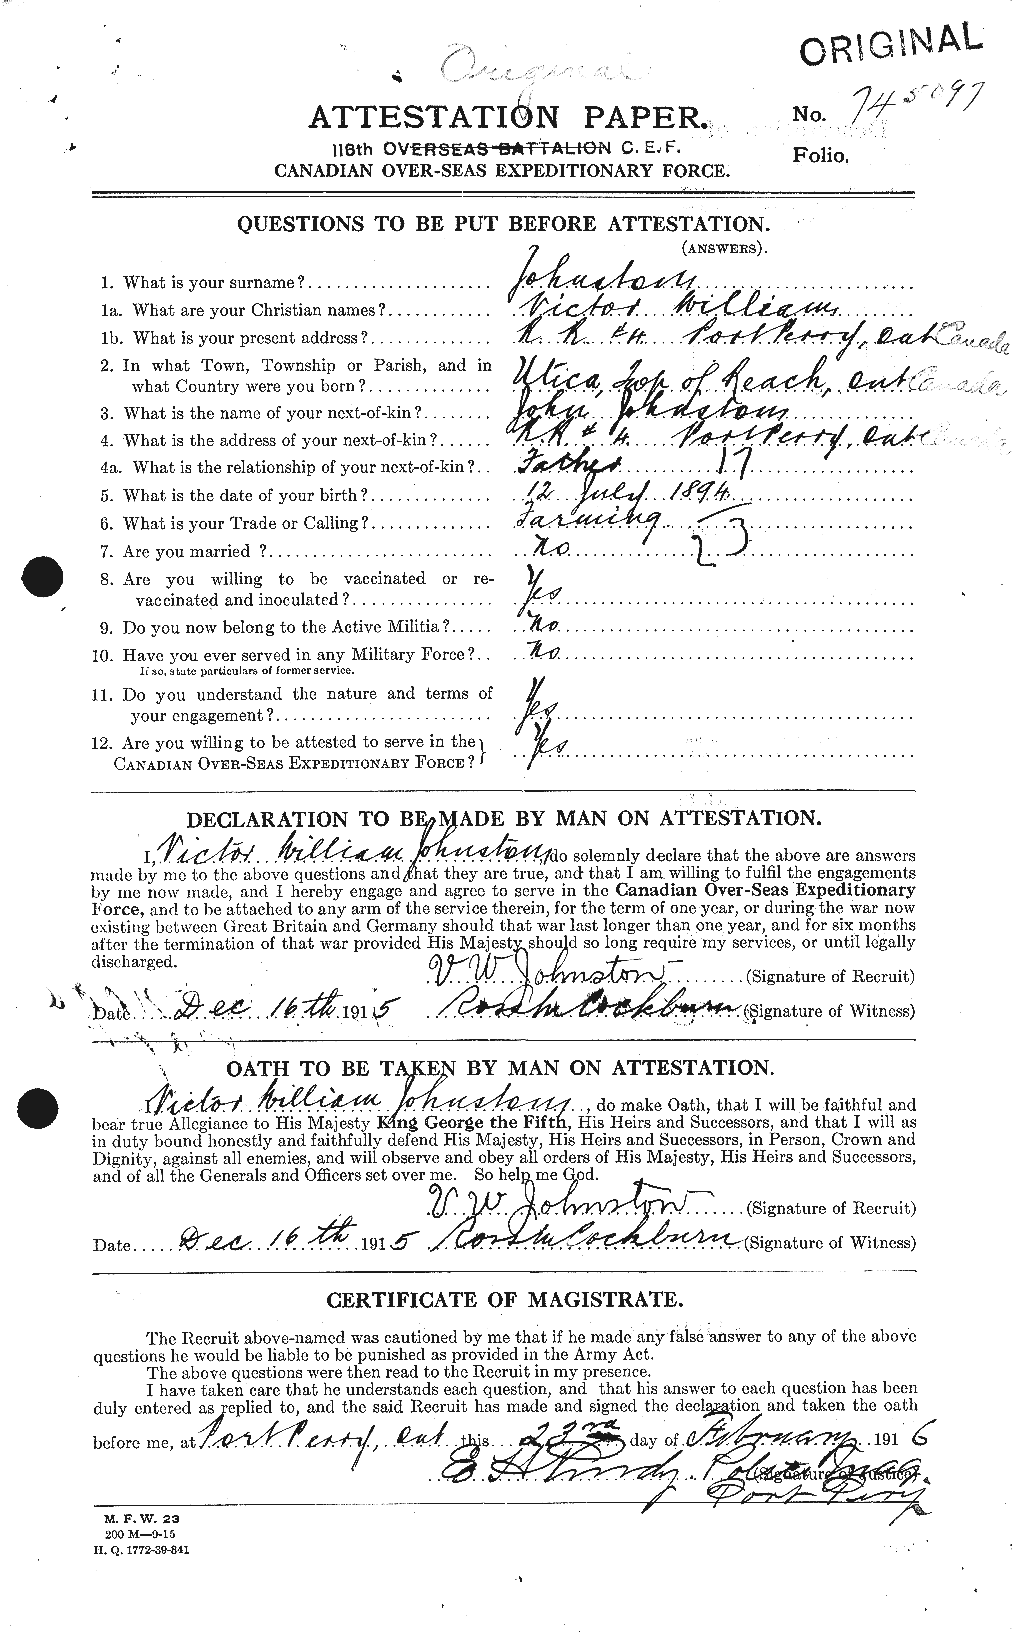 ORIGINAL
Original
ATTESTATION PAPER.
No. 745097
116th OVERSEAS BATTALION C. E. F.
Folio.
CANADIAN OVER-SEAS EXPEDITIONARY FORCE.
QUESTIONS TO BE PUT BEFORE ATTESTATION.
(ANSWERS).
1. What is your surname? Johnston
1a. What are your Christian names? Victor William
1b. What is your present address? R. R. #4 Port Perry, Ont Canada
2. In what Town, Township or Parish, and in
what Country were you born? Utica, Top of Reach, Ont Canada
3. What is the name of your next-of-kin? John Johnston
4. What is the address of your next-of-kin? R.R # 4 Port Perry, Ont Canada
4a. What is the relationship of your next-of-kin? Father 17
5. What is the date of your birth? 12 July 1894
6. What is your Trade or Calling? Farming
7. Are you married ? No 23
8. Are you willing to be vaccinated or re-
vaccinated and inoculated? Yes
9. Do you now belong to the Active Militia? No
10. Have you ever served in any Military Force? No
If so, state particulars of former service.
11. Do you understand the nature and terms of
your engagement? Yes
12. Are you willing to be attested to serve in the
CANADIAN OVER-SEAS EXPEDITIONARY FORCE? Yes
DECLARATION TO BE MADE BY MAN ON ATTESTATION.
I, Victor William Johnston, do solemnly declare that the above are answers
made by me to the above questions and that they are true, and that I am willing to fulfil the engagements
by me now made, and I hereby engage and agree to serve in the Canadian Over-Seas Expeditionary
Force, and to be attached to any arm of the service therein, for the term of one year, or during the war now
existing between Great Britain and Germany should that war last longer than one year, and for six months
after the termination of that war provided His Majesty should so long require my services, or until legally
discharged.
V. W. Johnston (Signature of Recruit)
Date Dec 16th 1915 Ross M Cockburn (Signature of Witness)
OATH TO BE TAKEN BY MAN ON ATTESTATION.
I, Victor William Johnston, do make Oath, that I will be faithful and
bear true Allegiance to His Majesty King George the Fifth, His Heirs and Successors, and that I will as
in duty bound honestly and faithfully defend His Majesty, His Heirs and Successors, in Person, Crown and
Dignity, against all enemies, and will observe and obey all orders of His Majesty, His Heirs and Successors,
and of all the Generals and Officers set over me. So help me God.
V. W. Johnston (Signature of Recruit)
Date Dec 16th 1915 Ross M Cockburn (Signature of Witness)
CERTIFICATE OF MAGISTRATE.
The Recruit above-named was cautioned by me that if he made any false answer to any of the above
questions he would be liable to be punished as provided in the Army Act.
The above questions were then read to the Recruit in my presence.
I have taken care that he understands each question, and that his answer to each question has been
duly entered as replied to, and the said Recruit has made and signed the declaration and taken the oath
before me, at Port Perry, Ont this 23rd day of February 1916
E H Purdy Police Mag. (Signature of Justice)
Port Perry
M. F. W. 23
200 M—9-15
H. Q. 1772-39-841